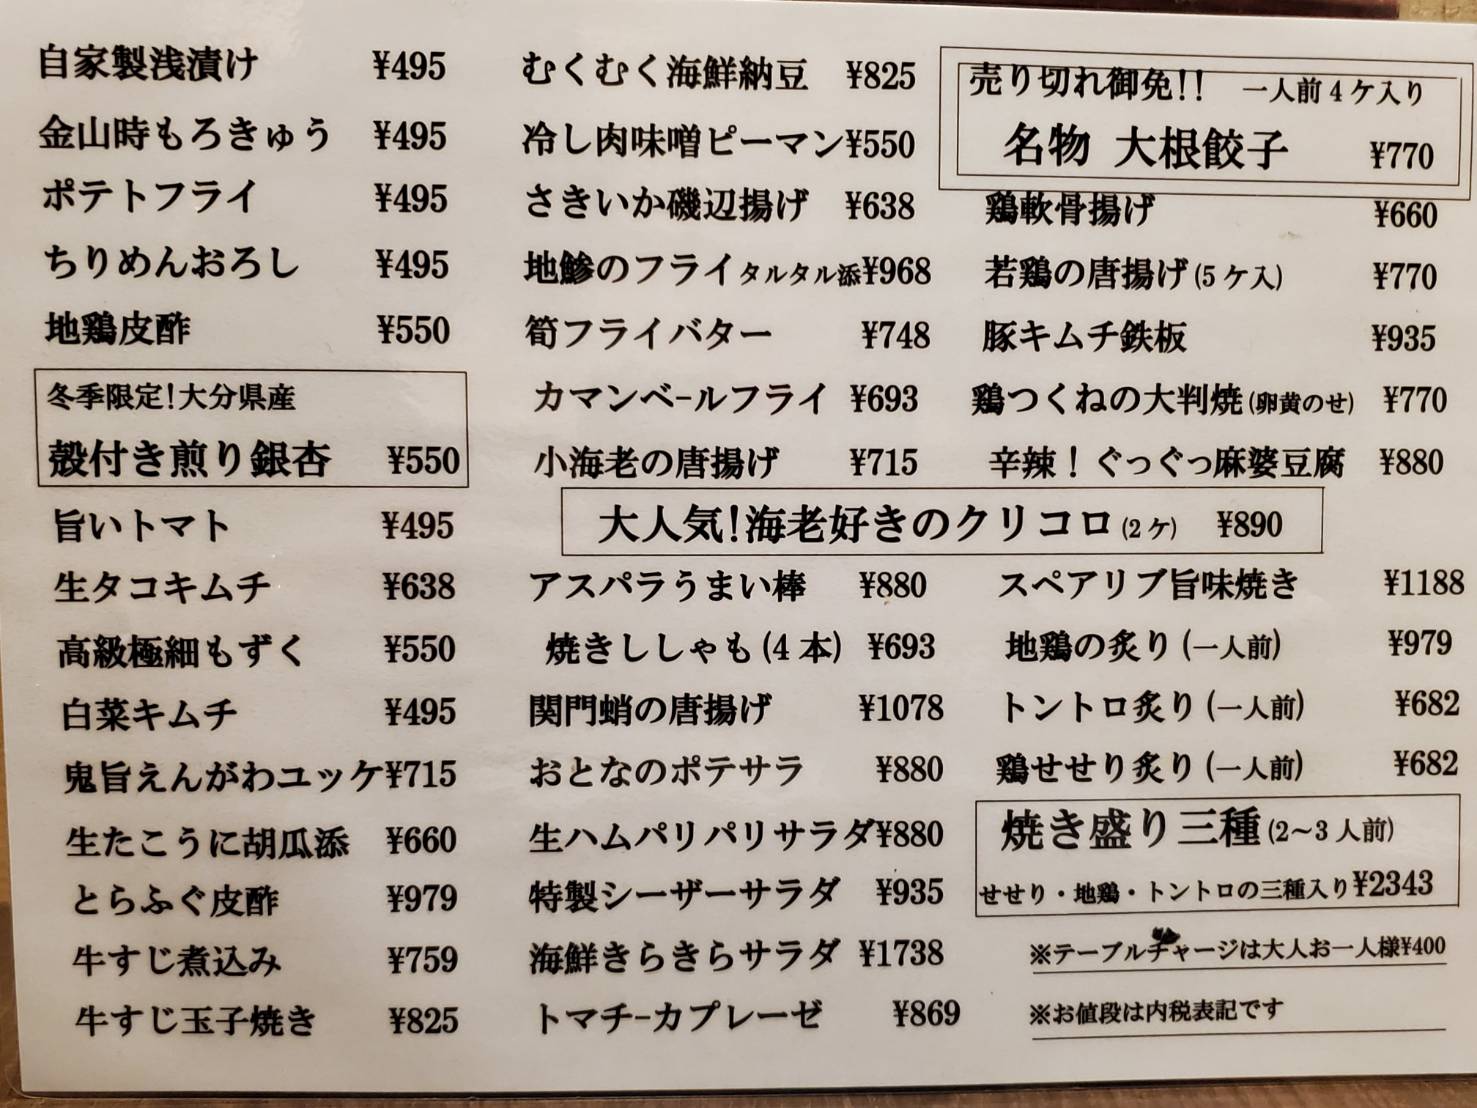 自家製浅漬け ¥495
金山時もろきゅう ¥495
ポテトフライ ¥495
ちりめんおろし ¥495
地鶏皮酢 ¥550
冬季限定!大分県産
殻付き煎り銀杏 ¥550
旨いトマト ¥495
生タコキムチ ¥638
高級極細もずく ¥550
白菜キムチ ¥495
鬼旨えんがわユッケ ¥715
生たこうに胡瓜添 ¥660
とらふぐ皮酢 ¥979
牛すじ煮込み ¥759
牛すじ玉子焼き ¥825
むくむく海鮮納豆 ¥825
冷し肉味噌ピーマン ¥550
さきいか磯辺揚げ ¥638
地鯵のフライタルタル添 ¥968
筍フライバター ¥748
カマンベールフライ ¥693
小海老の唐揚げ ¥715
大人気!海老好きのクリコロ(2ケ) ¥890
アスパラうまい棒 ¥880
焼きししゃも(4本) ¥693
関門蛸の唐揚げ ¥1078
おとなのポテサラ ¥880
生ハムパリパリサラダ ¥880
特製シーザーサラダ ¥935
海鮮きらきらサラダ ¥1738
トマチーカプレーゼ ¥869
売り切れ御免!! 一人前4ケ入り
名物 大根餃子 ¥770
鶏軟骨揚げ ¥660
若鶏の唐揚げ(5ケ入) ¥770
豚キムチ鉄板 ¥935
鶏つくねの大判焼(卵黄のせ) ¥770
辛辣!ぐっぐっ麻婆豆腐 ¥880
スペアリブ旨味焼き ¥1188
地鶏の炙り(一人前) ¥979
トントロ炙り(一人前) ¥682
鶏せせり炙り(一人前) ¥682
焼き盛り三種(2～3人前)
せせり・地鶏・トントロの三種入り ¥2343
※テーブルチャージは大人お一人様¥400
※お値段は内税表記です